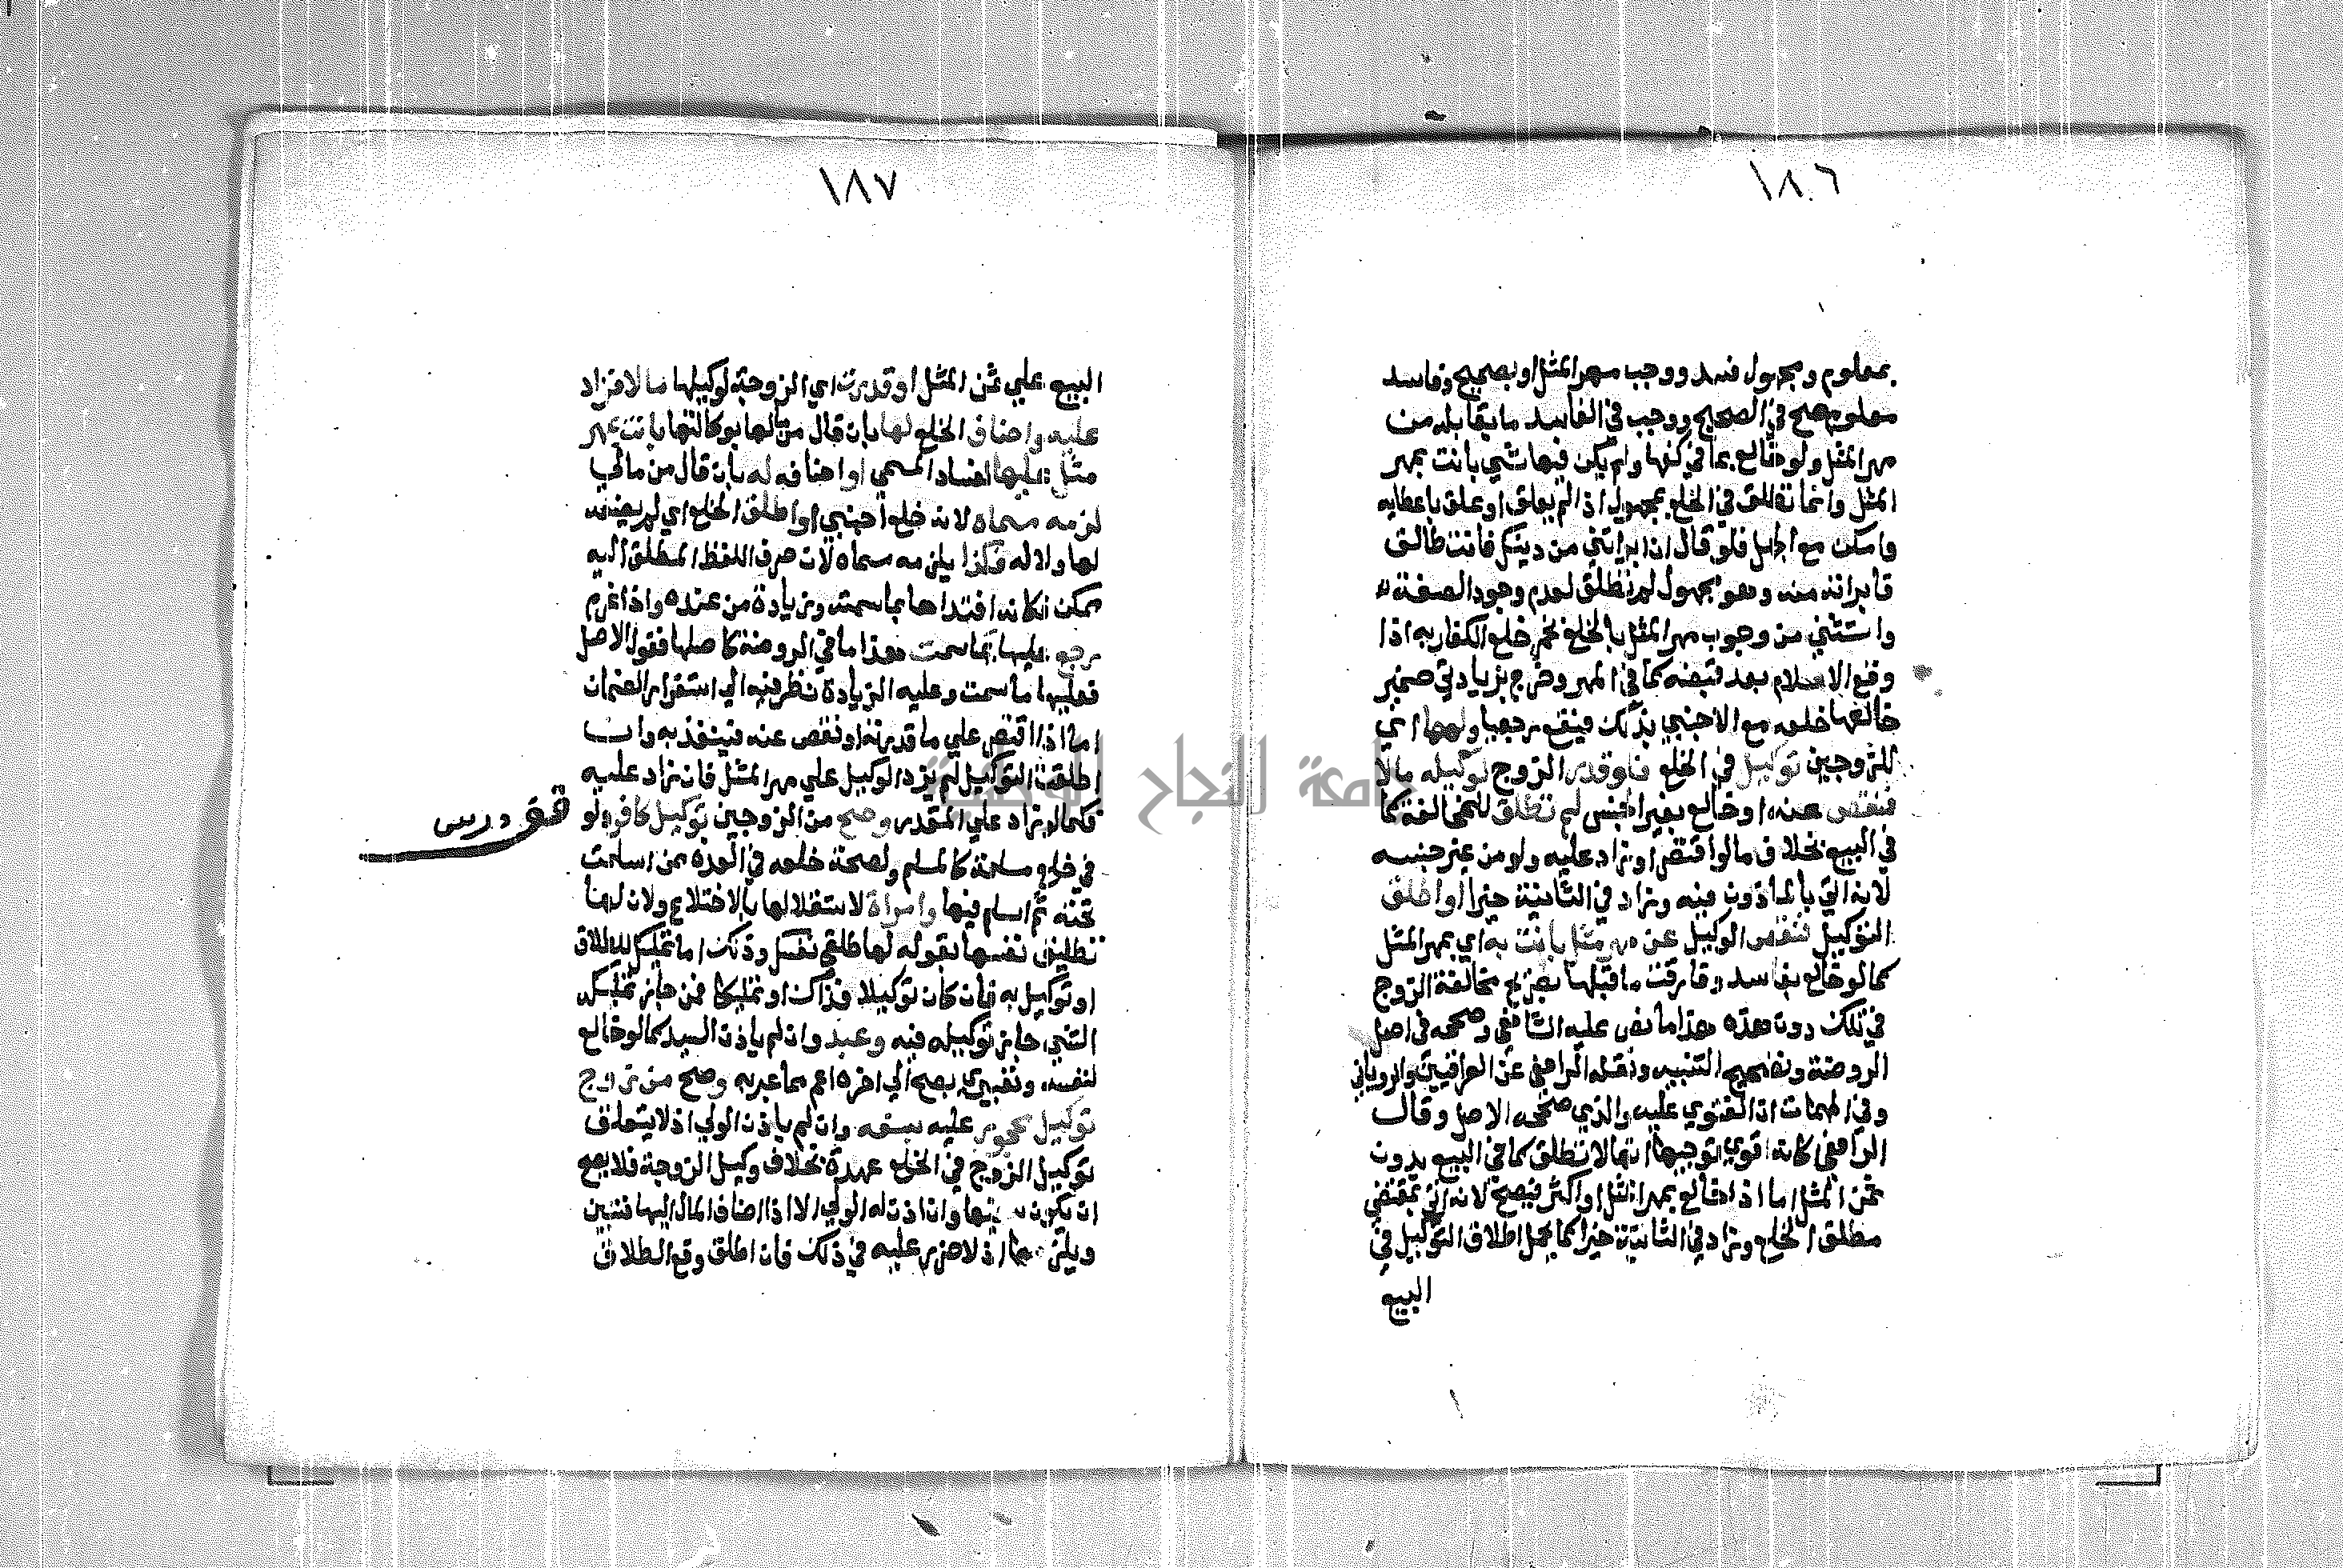 ١٨٦
بمعلوم ومجهول فسد ووجب مهر المثل او بصحيح وفاسد
معلوم صح في الصحيح ووجب في الفاسد ما يقابله من
مهر المثل ولو خالع بما في كفها ولم يكن فيها شي بانت بمهر
المثل وانما تطلق في الخلع بمجهول اذا لم يعلق او علق باعطايه
وامكن مع الجهل فلو قال ان ابراتني من دينك فانت طالق
فابراته منه وهو مجهول لم تطلق لعدم وجود الصفة
واستثني من وجوب مهر المثل بالخلع بخمر خلع الكفار به اذا
وقع الاسلام بعد قبضه كما في المهر وخرج بزيادتي ضمير
خالعها خلعه مع الاجنبي بذلك فيقع رجعيا ولهما اي
للزوجين توكيل في الخلع فلو قدر الزوج لوكيله مالا
فنقص عنه او خالع بغير الجنس لم تطلق للمخالفة كما
في البيع بخلاف ما لو اقتصر او زاد عليه ولو من غير جنسه
لانه اتي بالماذون فيه وزاد في الثانية خيرا او اطلق
التوكيل فنقص الوكيل عن مهر مثل بانت به اي بمهر المثل
كما لو خالع بفاسد وفارقت ما قبلها بصريح مخالفة الزوج
في تلك دون هذه هذا ما نص عليه الشافعي وصححه في اصل
الروضة وتصحيح التنبيه ونقله الرافعي عن العراقيين والروياني
وفي المهمات ان الفتوي عليه والذي صححه الاصل وقال
الرافعي كانه اقوي توجيها انها لا تطلق كما في البيع بدون
ثمن المثل اما اذا خالع بمهر المثل او اكثر فيصح لانه اتي بمقتضي
مطلق الخلع وزاد في الثانية خيرا كما يحمل اطلاق التوكيل في
البيع
١٨٧
البيع علي ثمن المثل او قدرت اي الزوجة لوكيلها مالا فزاد
عليه واضاف الخلع لها بان قال من مالها بوكالتها بانت بمهر
مثل عليها لفساد المسمي او اضافه له بان قال من مالي
لزمه مسماه لانه خلع اجنبي او اطلق الخلع اي لم يضفه
لها ولا له فكذا يلزمه مسماه لان صرف اللفظ المطلق اليه
ممكن فكانه افتداها بما سمته وزيادة من عنده واذا غرم
رجع عليها بما سمت هذا ما في الروضة كاصلها فقول الاصل
فعليها ما سمت وعليه الزيادة نظر فيه الي استقرار الضمان
اما اذا اقتصر علي ما قدرته او نقص عنه فينفذ به وان
اطلقت التوكيل لم يزد الوكيل علي مهر المثل فان زاد عليه
فكما لو زاد علي المقدر وصح من الزوجين توكيل كافر ولو
في خلع مسلمة كالمسلم ولصحة خلعه في العدة ممن اسلمت
تحته ثم اسلم فيها وامراة لاستقلالها بالاختلاع ولان لها
تطليق نفسها بقوله لها طلقي نفسك وذلك اما تمليك للطلاق
او توكيل به فان كان توكيلا فذاك او تمليكا فمن جاز تمليكه
الشي جاز توكيله فيه وعبد وان لم ياذن السيد كما لو خالع
لنفسه وتعبيري بصح الي اخره اعم مما عبر به وصح من زوج
توكيل محجور عليه بسفه وان لم ياذن الولي اذ لا يتعلق
توكيل الزوج في الخلع عهدة بخلاف وكيل الزوجة فلا يصح
ان يكون سفيها وان اذن له الولي الا اذا اضاف المال اليها فتبين
ويلزمها اذ لا ضرر عليه في ذلك فان اطلق وقع الطلاق
قف درس
جامعة النجاح الوطنية